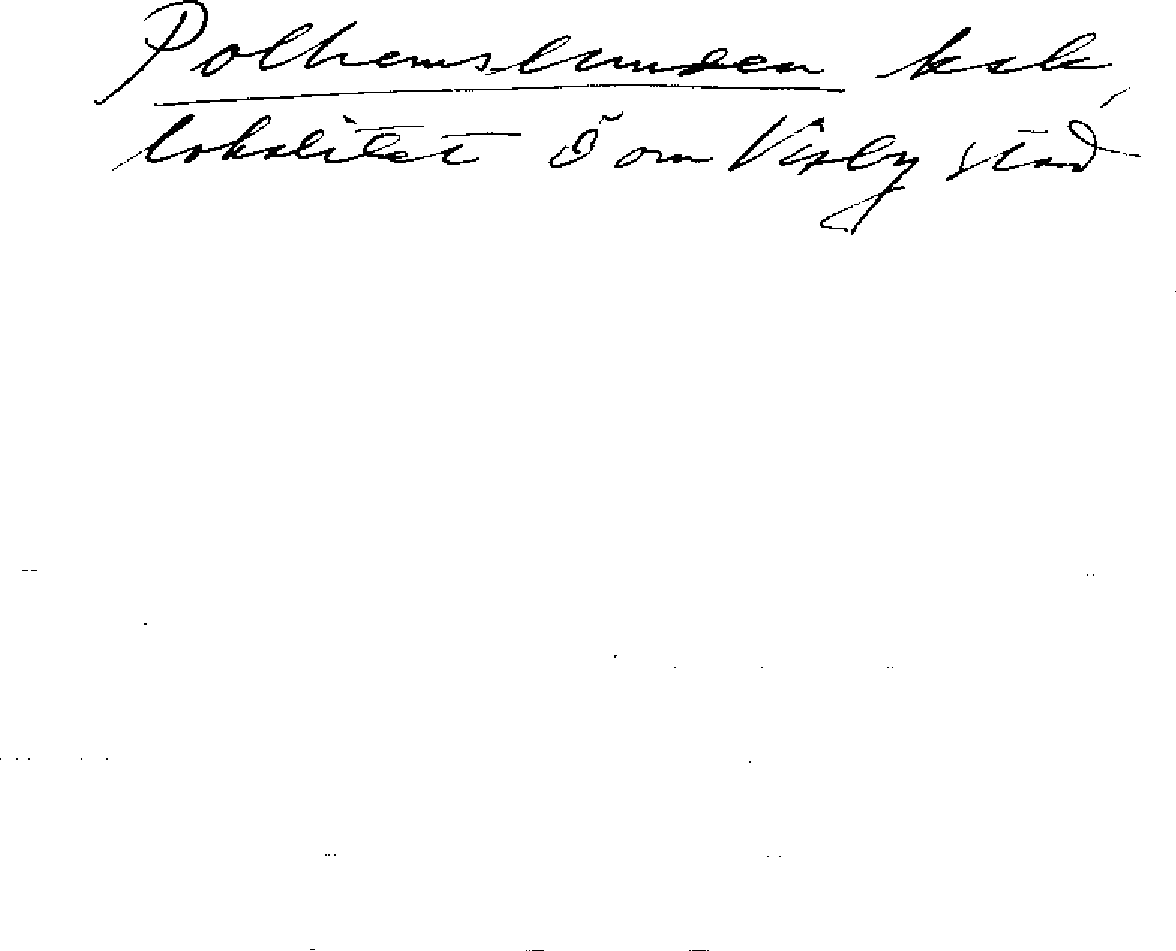 Polhemslunden
lokalitet Ö om Visby stad